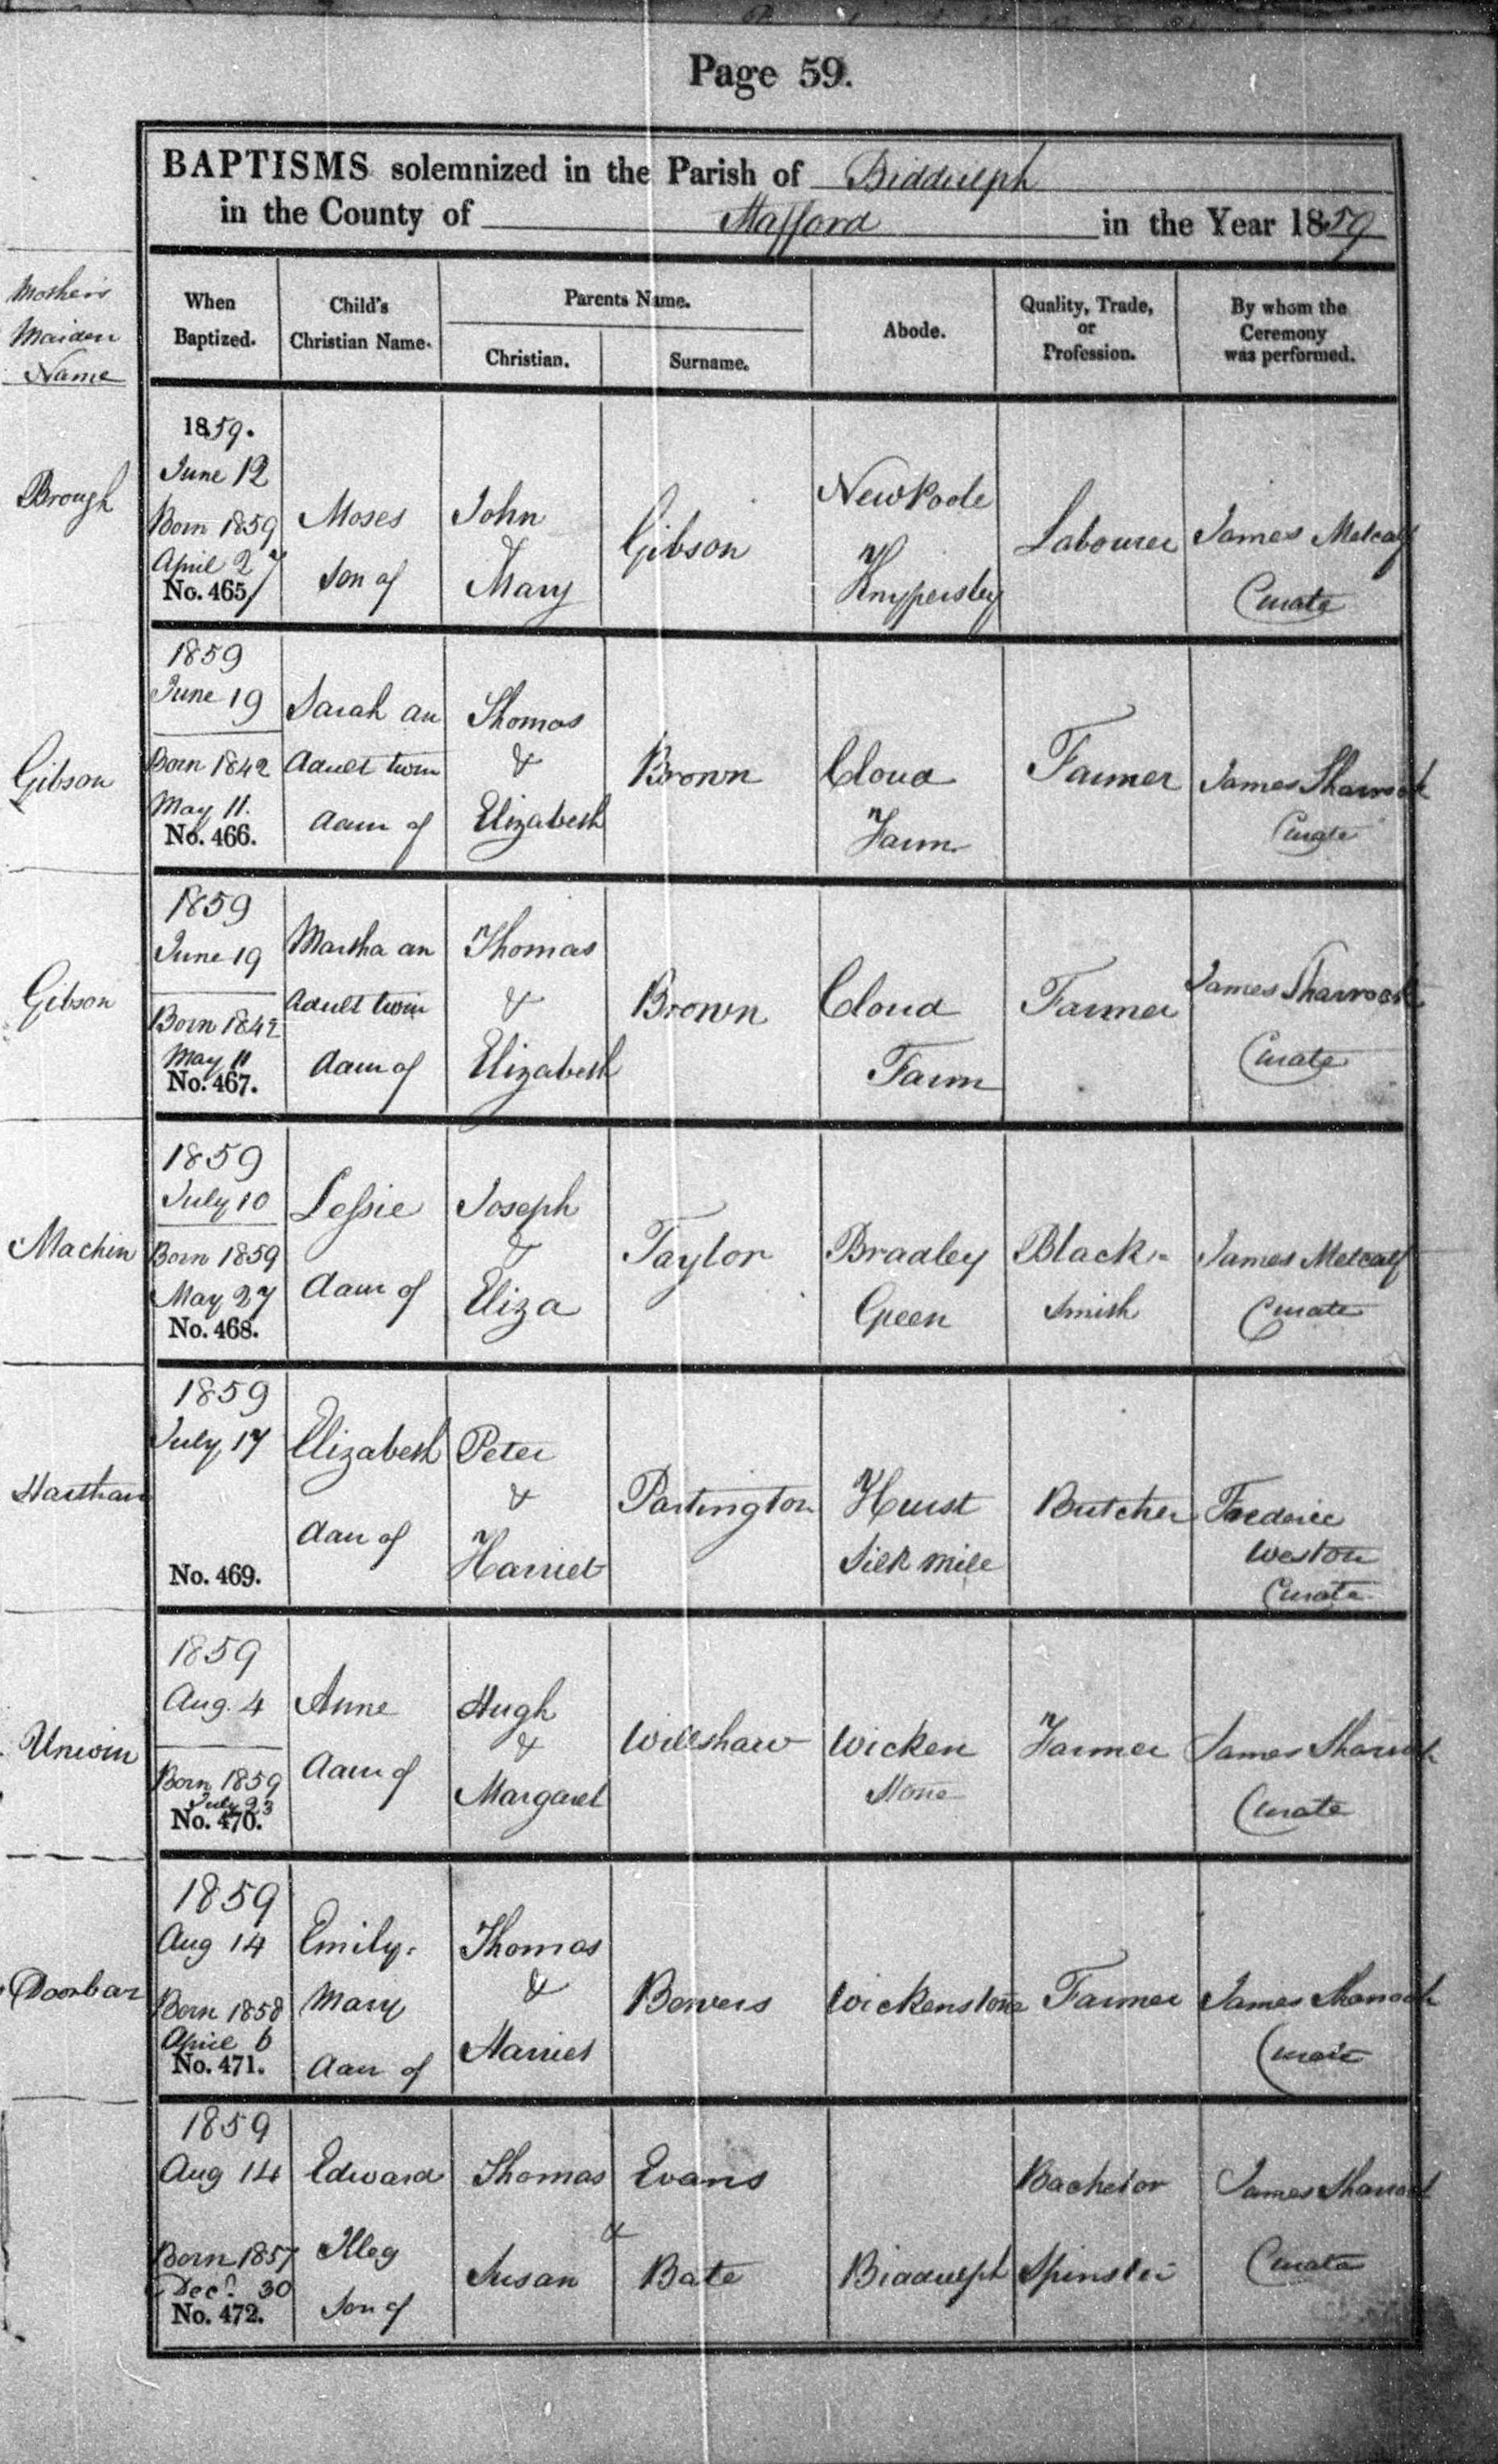 Page 59.
BAPTISMS solemnized in the Parish of Biddulph
in the County of Stafford in the Year 1859
Mother's
Maiden
Name
When
Baptized.
Child's
Christian Name.
Parents Name.
Christian.
Surname.
Abode.
Quality, Trade,
or
Profession.
By whom the
Ceremony
was performed.
Brough
1859.
June 12
Born 1859
April 27
No. 465.
Moses
Son of
John
&
Mary
Gibson
New Poole
Knypersley
Labourer
James Metcalf
Curate
Gibson
1859
June 19
Born 1842
May 11.
No. 466.
Sarah an
Adult twin
daur of
Thomas
&
Elizabeth
Brown
Cloud
Farm
Farmer
James Sharrock
Curate
Gibson
1859
June 19
Born 1842
May 11
No. 467.
Martha an
Adult twin
daur of
Thomas
&
Elizabeth
Brown
Cloud
Farm
Farmer
James Sharrock
Curate
Machin
1859
July 10
Born 1859
May 27
No. 468.
Lessie
daur of
Joseph
&
Eliza
Taylor
Bradley
Green
Black-
smith
James Metcalf
Curate
Harthan
1859
July 17
No. 469.
Elizabeth
dau of
Peter
&
Harriet
Partington
Hurst
Silk mill
Butcher
Frederic
Weston
Curate
Unwin
1859
Aug. 4
Born 1859
July 23
No. 470.
Anne
daur of
Hugh
&
Margaret
Willshaw
Wicken
Stone
Farmer
James Sharrock
Curate
Doorbar
1859
Aug 14
Born 1858
April 6
No. 471.
Emily.
Mary
daur of
Thomas
&
Harriet
Bowers
Wickenstone
Farmer
James Sharrock
Curate
1859
Aug 14
Born 1857
Decr. 30
No. 472.
Edward
Illeg
Son of
Thomas
Susan
Evans
&
Bate
Biddulph
Bachelor
Spinster
James Sharrock
Curate